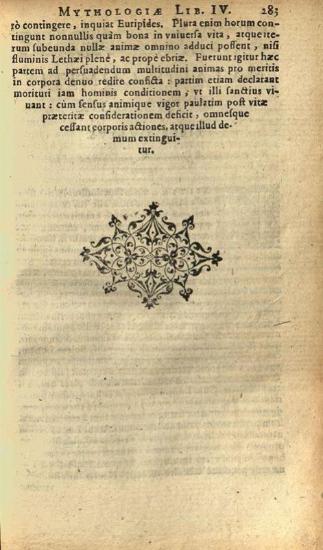 MYTHOLOGIÆ LIB. IV. 283
rò contingere, inquiat Euripides. Plura enim horum con-
tingunt nonnullis quàm bona in vniuersa vita, atque ite-
rum subeunda nullæ animæ omnino adduci possent, nisi
fluminis Lethæi plenę, ac propè ebriæ. Fuerunt igitur hæc
partem ad persuadendum multitudini animas pro meritis
in corpora denuo redire conficta: partim etiam declarant
morituri iam hominis conditionem, vt illi sanctius vi-
uant: cùm sensus animique vigor paulatim post vitæ
præteritæ considerationem deficit, omnesque
cessant corporis actiones, atque illud de-
mum extingui-
tur.